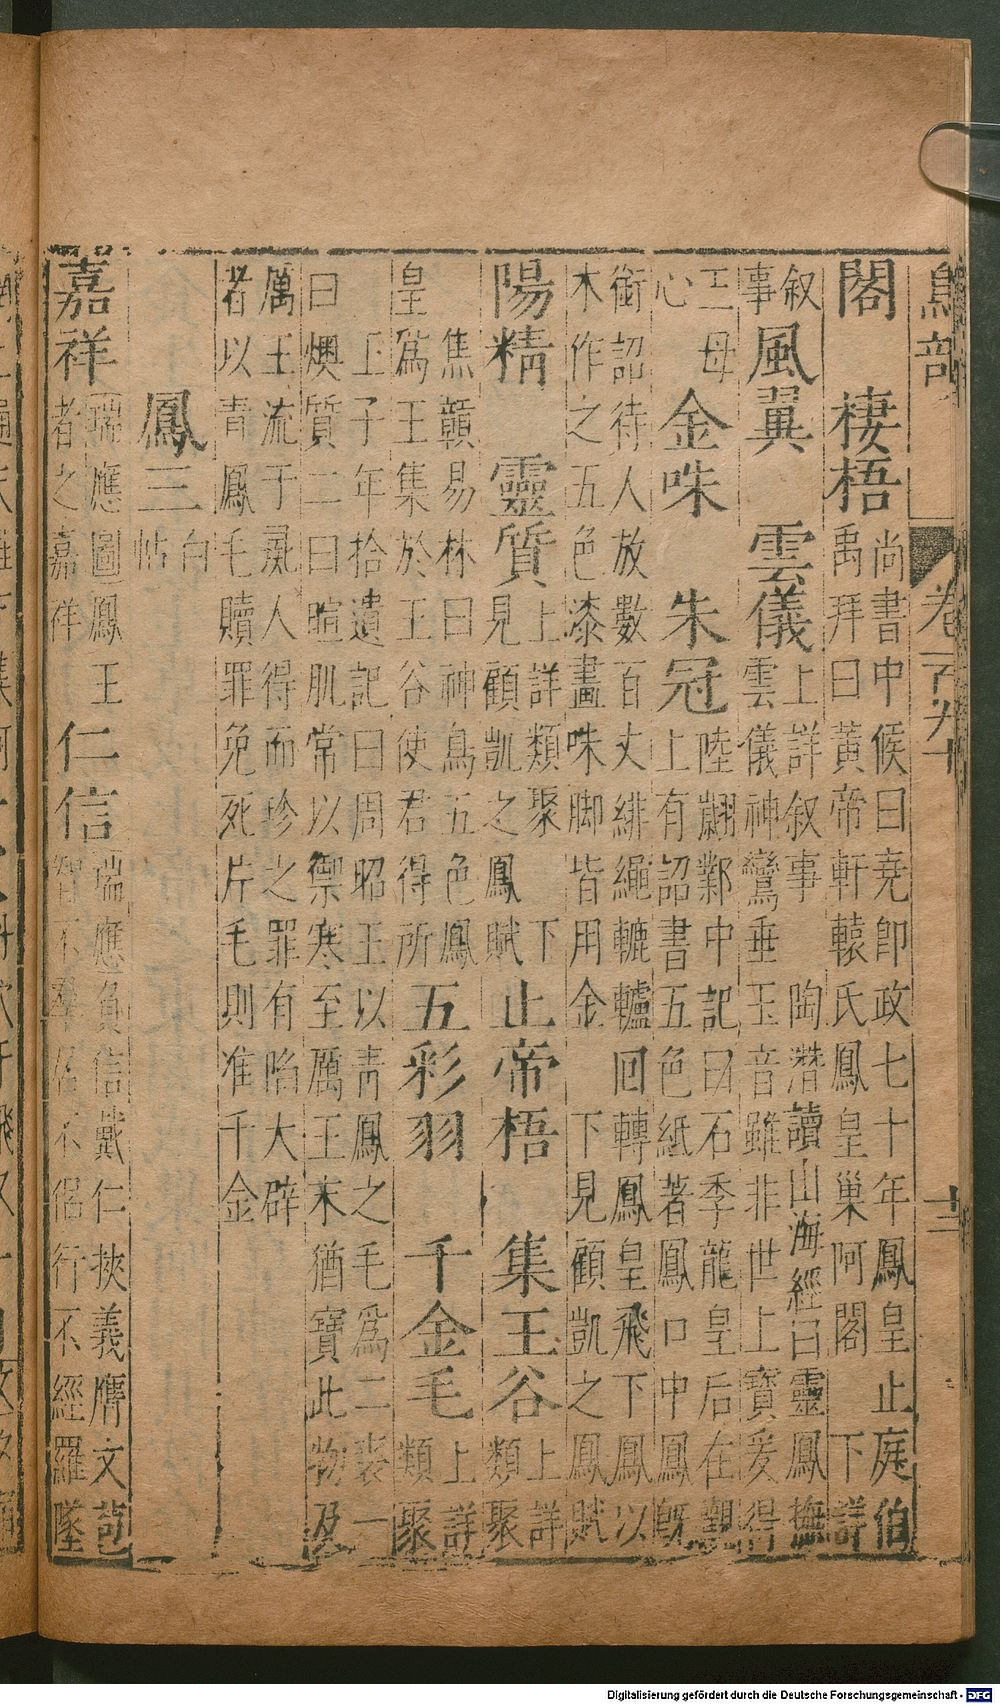 鳥部 卷一百九十 十二
閣 棲梧 尚書中候曰堯即政七十年鳳皇止庭伯
禹拜曰黃帝軒轅氏鳳皇巢阿閣 下詳
敘
事 風翼 雲儀 上詳敘事 陶潛讀山海經曰靈鳳撫
雲儀神鸞垂玉音雖非世上寶爰得
王母
心 金咮 朱冠 陸翽鄴中記曰石季龍皇后在觀
上有詔書五色紙著鳳口中鳳既
銜詔待人放數百丈緋繩轆轤回轉鳳皇飛下鳳以
木作之五色漆畫咮脚皆用金 下見顧凱之鳳賦
陽精 靈質 上詳類聚 下
見顧凱之鳳賦 止帝梧 集王谷 上詳
類聚
焦贛易林曰神鳥五色鳳
皇為王集於王谷使君得所 五彩羽 千金毛 上詳
類聚
王子年拾遺記曰周昭王以青鳳之毛為二裘一
曰燠質二曰暄肌常以禦寒至厲王末猶寶此物及
厲王流于彘人得而珍之罪有陷大辟
者以青鳳毛贖罪免死片毛則准千金
鳳三 白
帖
嘉祥 瑞應圖鳳王
者之嘉祥 仁信 瑞應負信戴仁挾義膺文苞
智不羣居不侶行不經羅墜
Digitalisierung gefördert durch die Deutsche Forschungsgemeinschaft - DFG